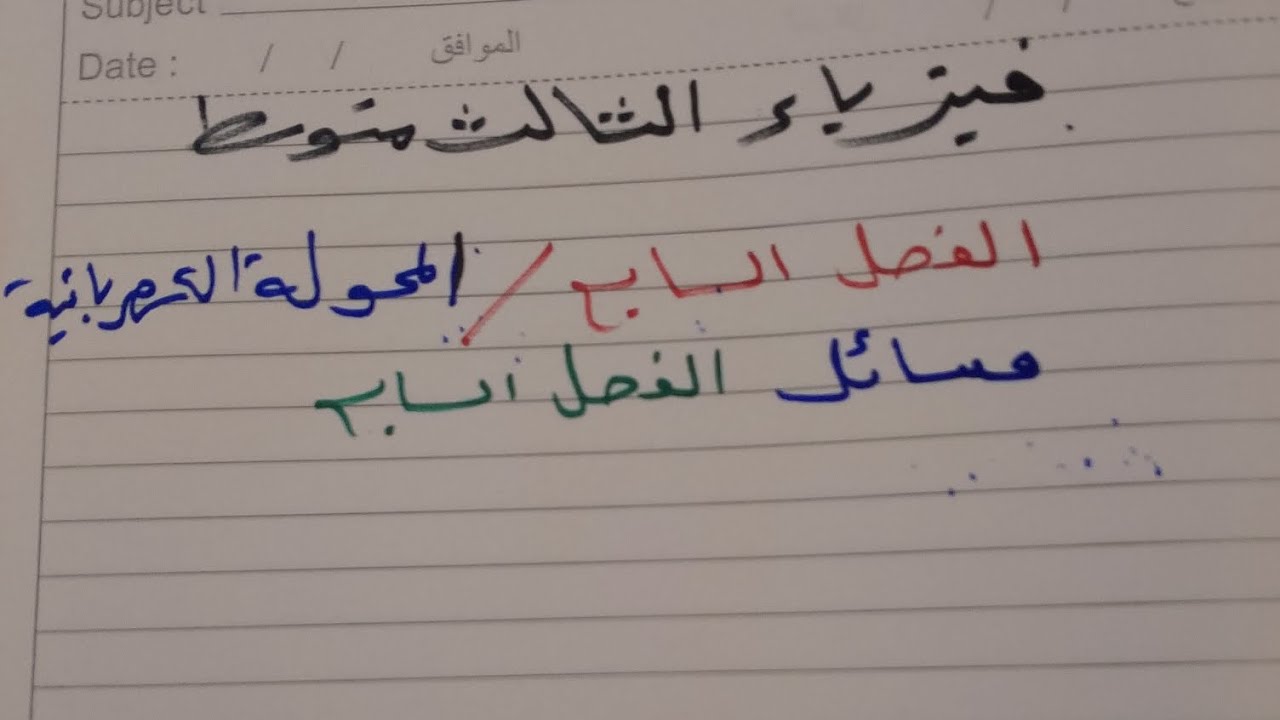 Subject
Date : / / الموافق
فيزياء الثالث متوسط
الفصل السابع / المحولة الكهربائية
مسائل الفصل السابع